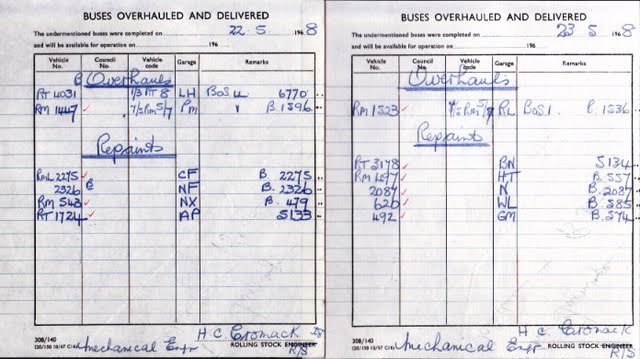 BUSES OVERHAULED AND DELIVERED
The undermentioned buses were completed on 22. 5. 1968
and will be available for operation on 196
Vehicle No. Council No. Vehicle code Garage Remarks
Overhauls
RT 4031 1/3 RT 8 LH BoS. 6770
RM 1447 7/2 RM 5/7 PM B. 1596
Repaints
RML 2275 CF B. 2275
2326 B NF B. 2326
RM 543 NX B. 479
RT 1724 AP 5133
308/140
H C Cromack
Mechanical Engr ROLLING STOCK ENGINEER
R/S
BUSES OVERHAULED AND DELIVERED
The undermentioned buses were completed on 23 5 1968
and will be available for operation on 196
Vehicle No. Council No. Vehicle code Garage Remarks
Overhauls
RM 1523 RM 5/7 RL BoS 1. B. 1536
Repaint
RT 3178 BN 5134
RM 497 HT B. 557
2087 N B. 2087
626 WL B. 585
492 GM B. 574
308/140
H. C. Cromack
Mechanical Engr ROLLING STOCK ENGINEER
R/S